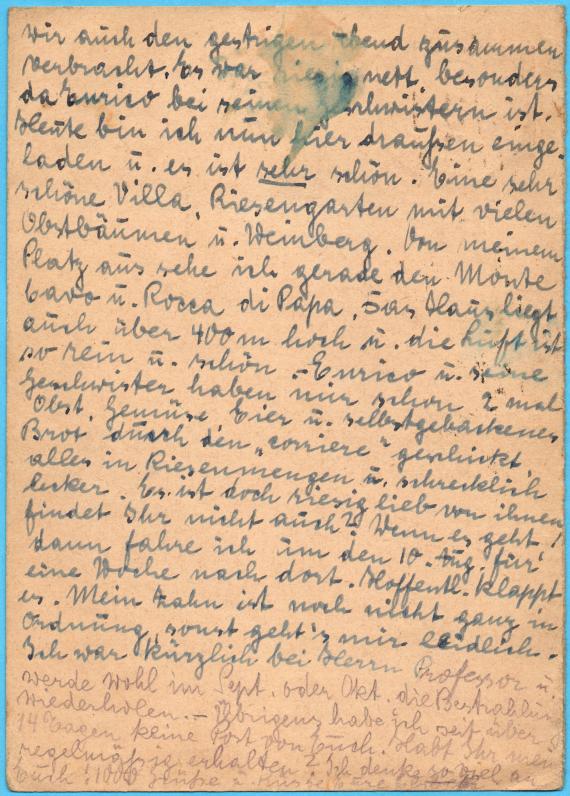 wir auch den gestrigen Abend zusammen
verbracht. Es war riesig nett, besonders
da Enrico bei seinen Geschwistern ist.
Heute bin ich nun hier draußen einge-
laden u. es ist sehr schön. Eine sehr
schöne Villa, Riesengarten mit vielen
Obstbäumen u. Weinberg. Von meinem
Platz aus sehe ich gerade den Monte
Cavo u. Rocca di Papa, das Haus liegt
auch über 400 m hoch u. die Luft ist
so rein u. schön. – Enrico u. seine
Geschwister haben mir schon 2 mal
Obst, Gemüse Eier u. selbstgebackenes
Brot durch den "corriere" geschickt,
alles in Riesenmengen u. schrecklich
lecker. Es ist doch riesig lieb von ihnen,
findet Ihr nicht auch? Wenn es geht,
dann fahre ich um den 10. Aug. für
eine Woche nach dort. Hoffentl. klappt
es. Mein Zahn ist noch nicht ganz in
Ordnung, sonst geht's mir leidlich.
Ich war kürzlich bei Herrn Professor u.
werde wohl im Sept. oder Okt. die Bestrahlung
wiederholen. – Übrigens habe ich seit über
14 Tagen keine Post von Euch. Habt Ihr meine
regelmäßig erhalten? Ich denke so viel an
Euch! 1000 Grüße u. Küsse Eure